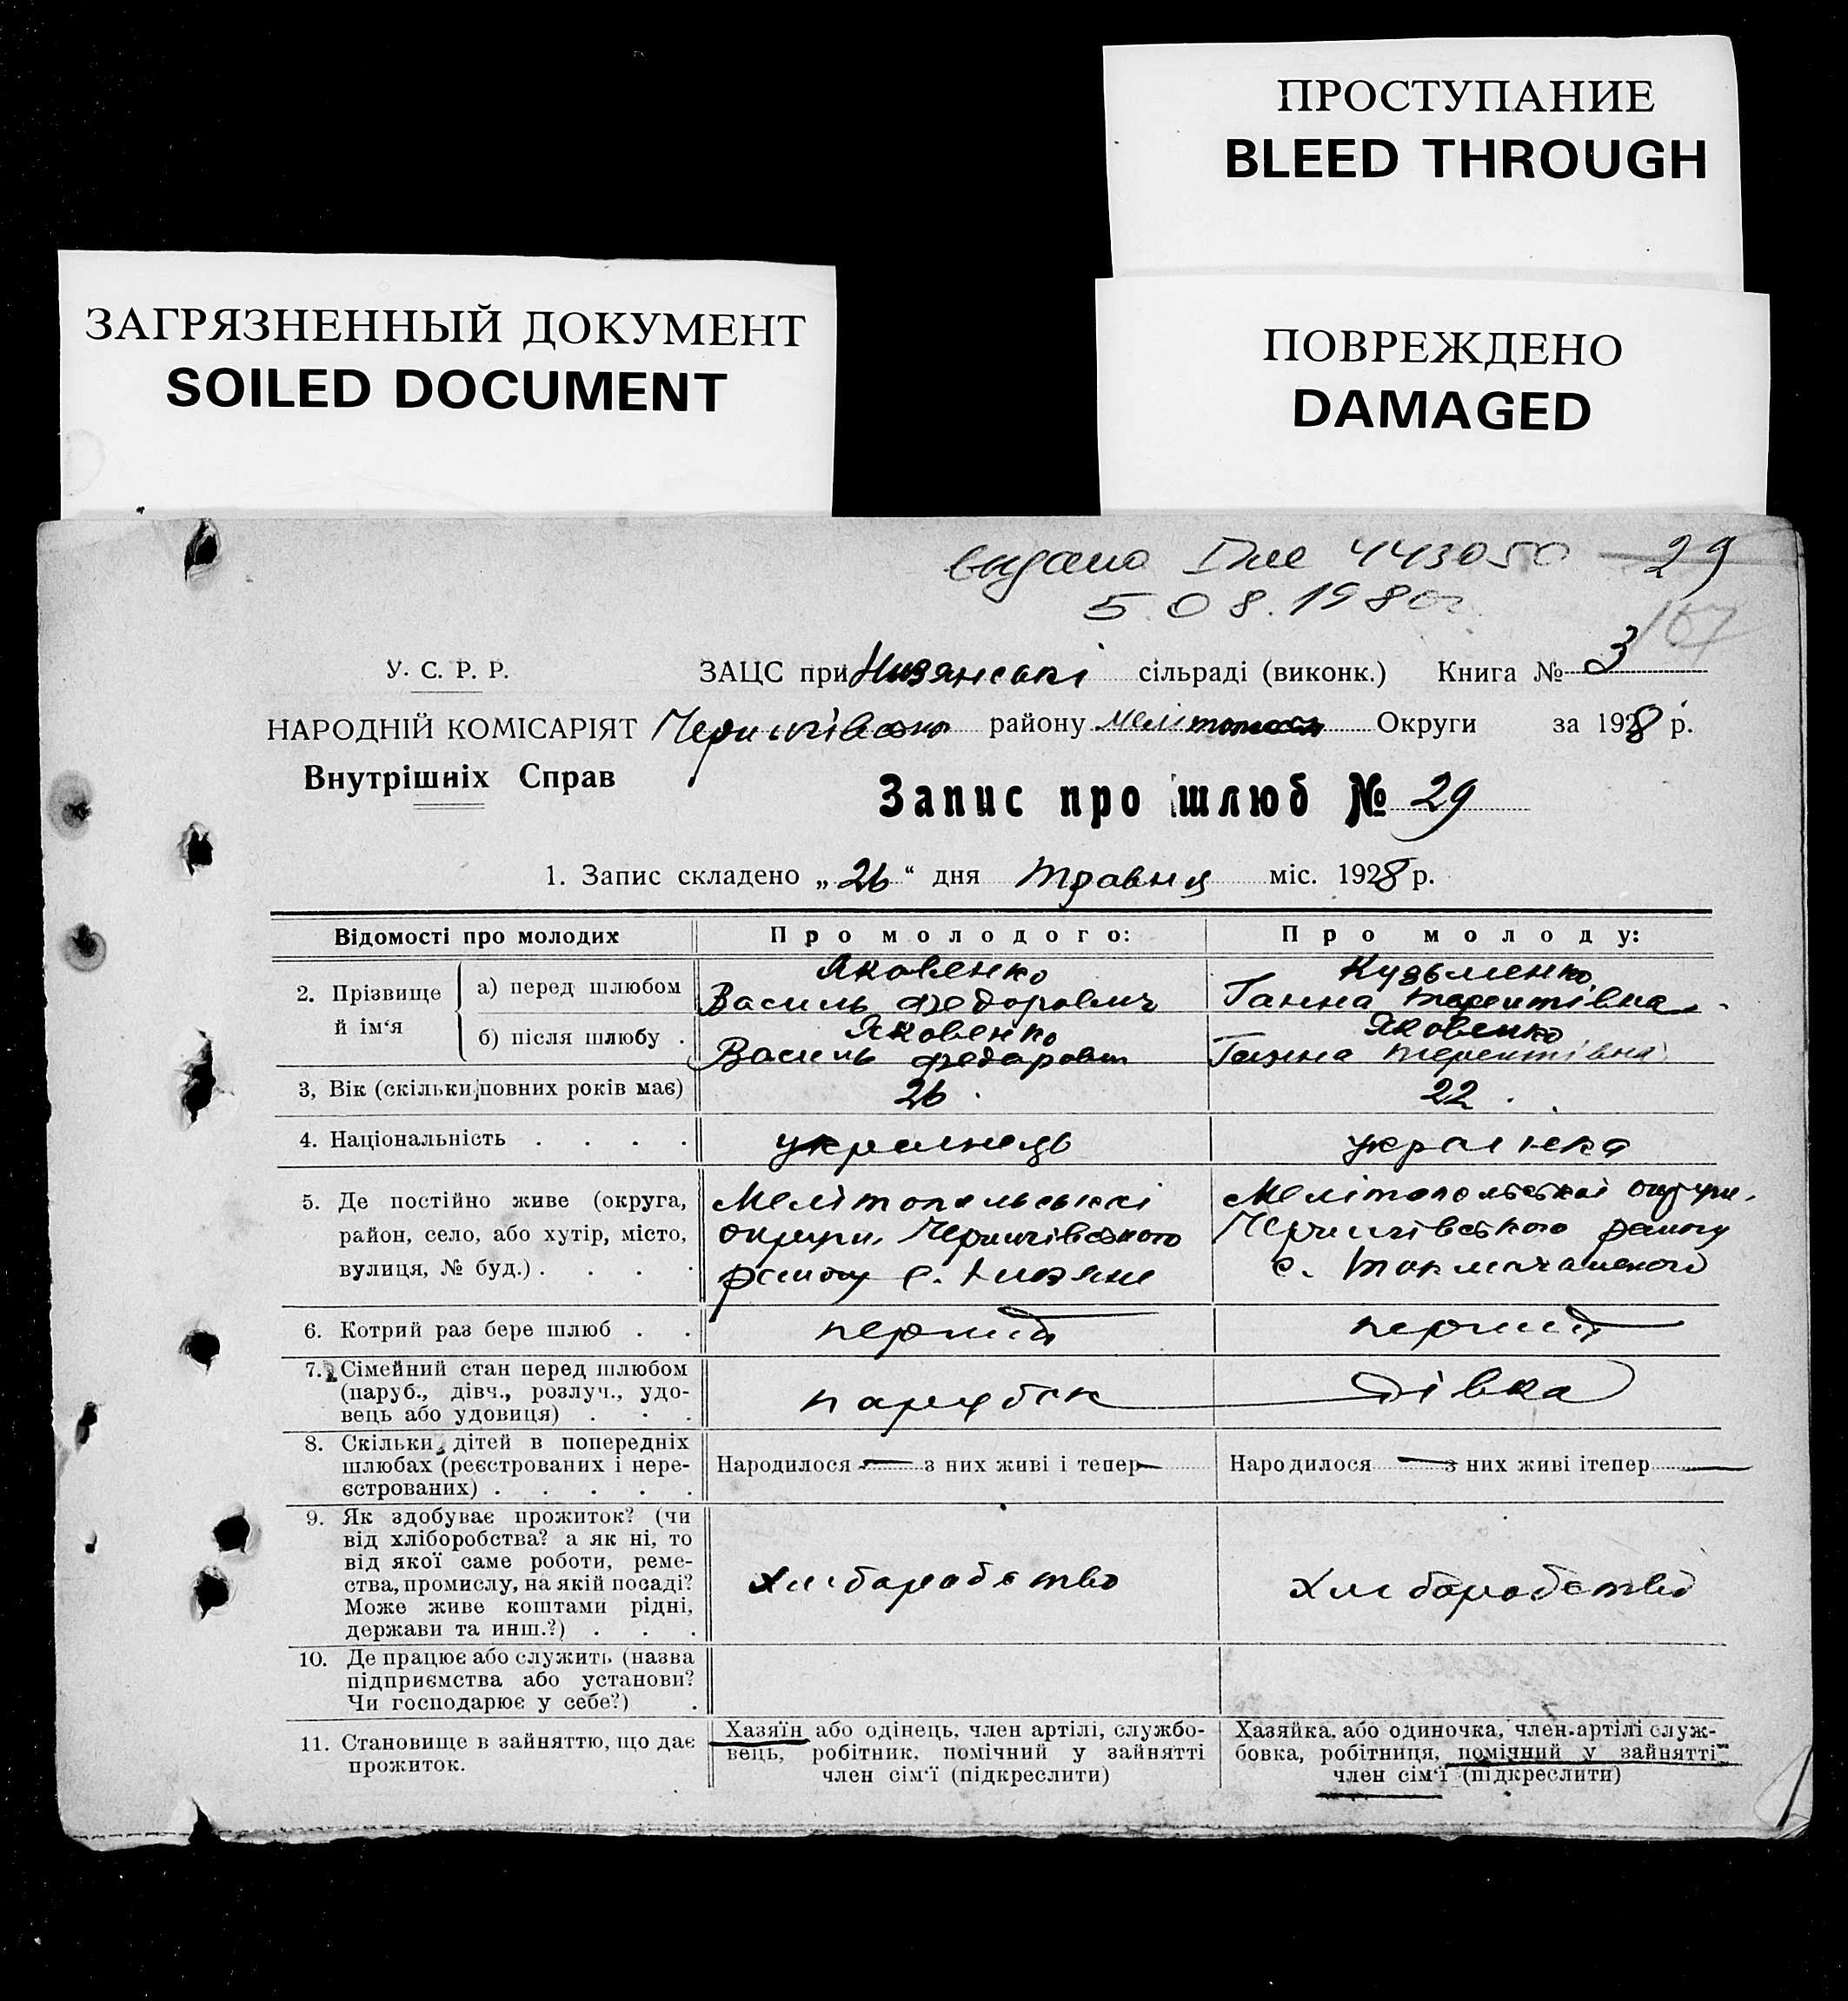 ПРОСТУПАНИЕ
BLEED THROUGH
ЗАГРЯЗНЕННЫЙ ДОКУМЕНТ
SOILED DOCUMENT
ПОВРЕЖДЕНО
DAMAGED
443050 29
5.08.1980г. 167
У. С. Р. Р.
НАРОДНІЙ КОМІСАРІЯТ
Внутрішніх Справ
ЗАЦС при Низянські сільраді (виконк.) Книга № 3
району Округи за 1928 р.
Запис про шлюб № 29
1. Запис складено „26“ дня травня міс. 1928 р.
Відомості про молодих
Про молодого:
Про молоду:
2. Прізвище й ім‘я
а) перед шлюбом
Яковенко
Василь Федорович
Кузьменко
Ганна Терентівна
б) після шлюбу .
Яковенко
Василь Федорович
Яковенко
Ганна Терентівна
3, Вік (скільки повних років має)
26
22
4. Національність . . . .
українець
українка
5. Де постійно живе (округа,
район, село, або хутір, місто,
вулиця, № буд.) . . . .
Мелітопольські
округи, Чернигівського
району с. Низяни
Мелітопольської округи,
Чернигівського району
с.
6. Котрий раз бере шлюб . .
перший
перший
7. Сімейний стан перед шлюбом
(паруб., дівч., розлуч., удо-
вець або удовиця) . . .
парубок
дівка
8. Скільки дітей в попередніх
шлюбах (реєстрованих і нере-
єстрованих) . . . . .
Народилося — з них живі і тепер —
Народилося — з них живі ітепер —
9. Як здобуває прожиток? (чи
від хліборобства? а як ні, то
від якої саме роботи, реме-
ства, промислу, на якій посаді?
Може живе коштами рідні,
держави та инш.?) . . .
хліборобство
хліборобство
10. Де працює або служить (назва
підприємства або установи?
Чи господарює у себе?) .
11. Становище в зайняттю, що дає
прожиток.
Хазяїн або одінець, член артілі, службо-
вець, робітник, помічний у зайнятті
член сім‘ї (підкреслити)
Хазяйка, або одиночка, член-артілі служ-
бовка, робітниця, помічний у зайнятті
член сім‘ї (підкреслити)